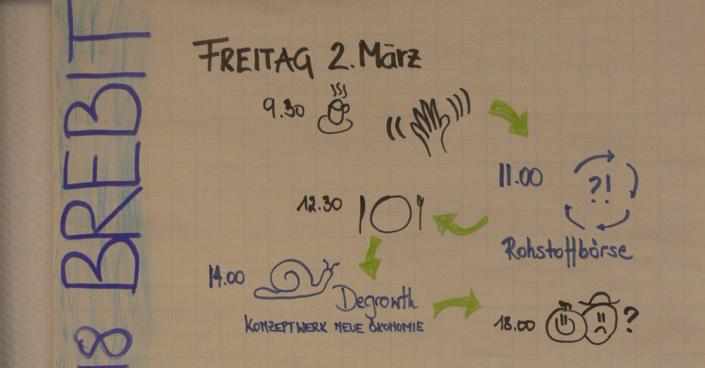 18 BREBIT
FREITAG 2. März
9.30
11.00
?!
Rohstoffbörse
12.30
14.00
Degrowth
KONZEPTWERK NEUE ÖKONOMIE
18.00 ?